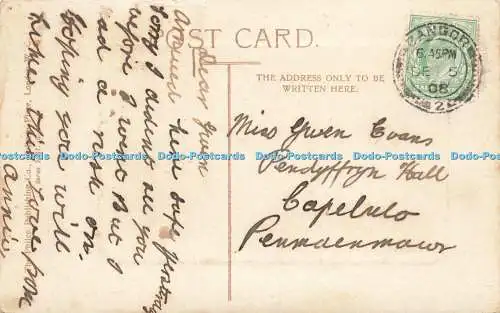 POST CARD.
THE ADDRESS ONLY TO BE
WRITTEN HERE.
BANGOR
6.45PM
SE 5
08
Miss Gwen Evans
Pendyffryn Hall
Capelulo
Penmaenmawr
Dear Gwen
Arrived here safe yesterday
sorry I didnt see you
before I went But I
had a rush on.
Hoping you will
like this love from
Annie
Dodo-Postcards Dodo-Postcards Dodo-Postcards Dodo-Postcards Dodo-Postcards Dodo-Postcards